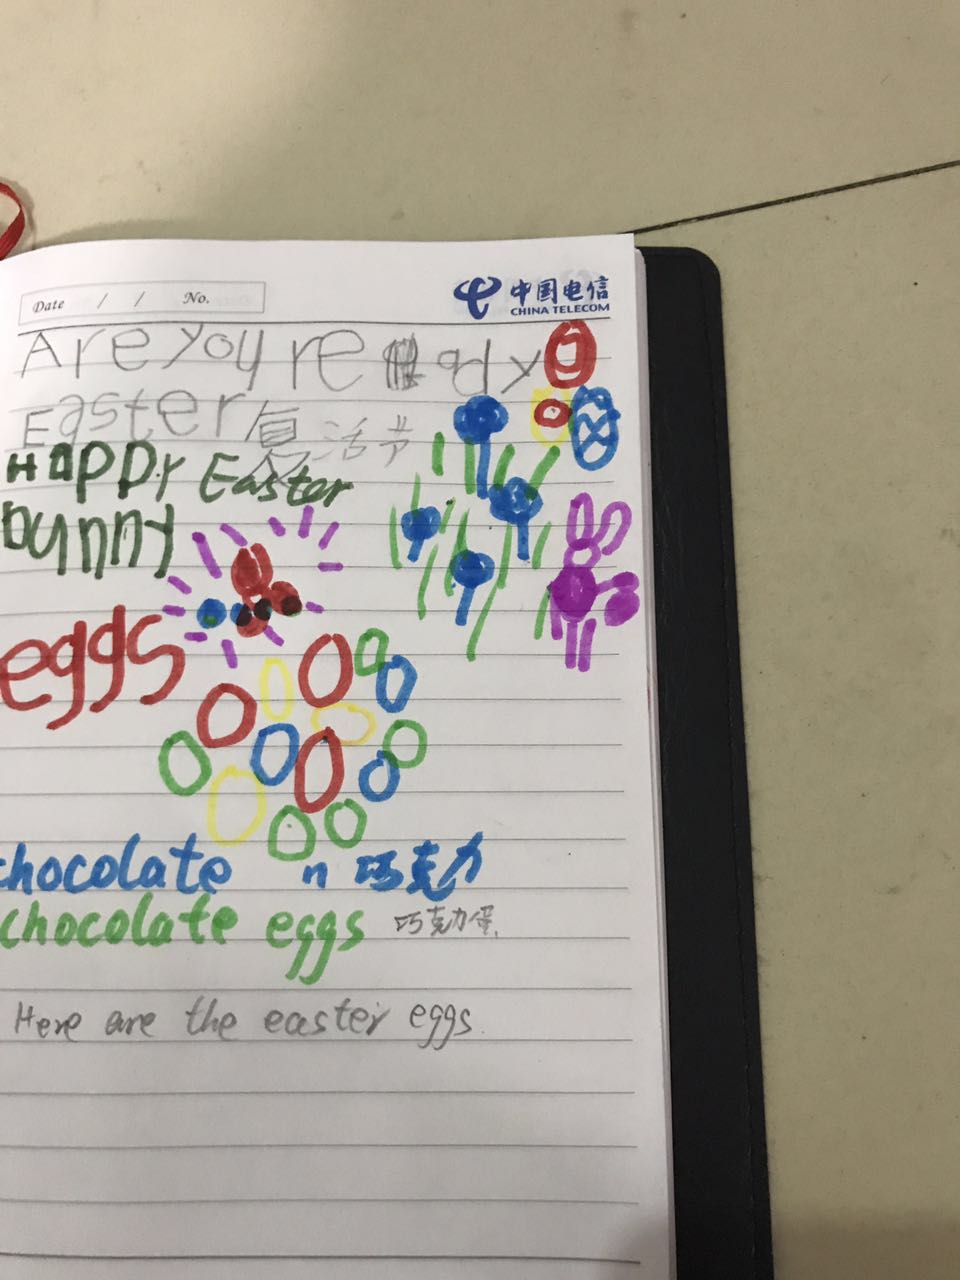 Date / / No.
中国电信
CHINA TELECOM
Are you ready
Easter 复活节
Happy Easter
bunny
eggs
chocolate n 巧克力
chocolate eggs 巧克力蛋.
Here are the easter eggs.